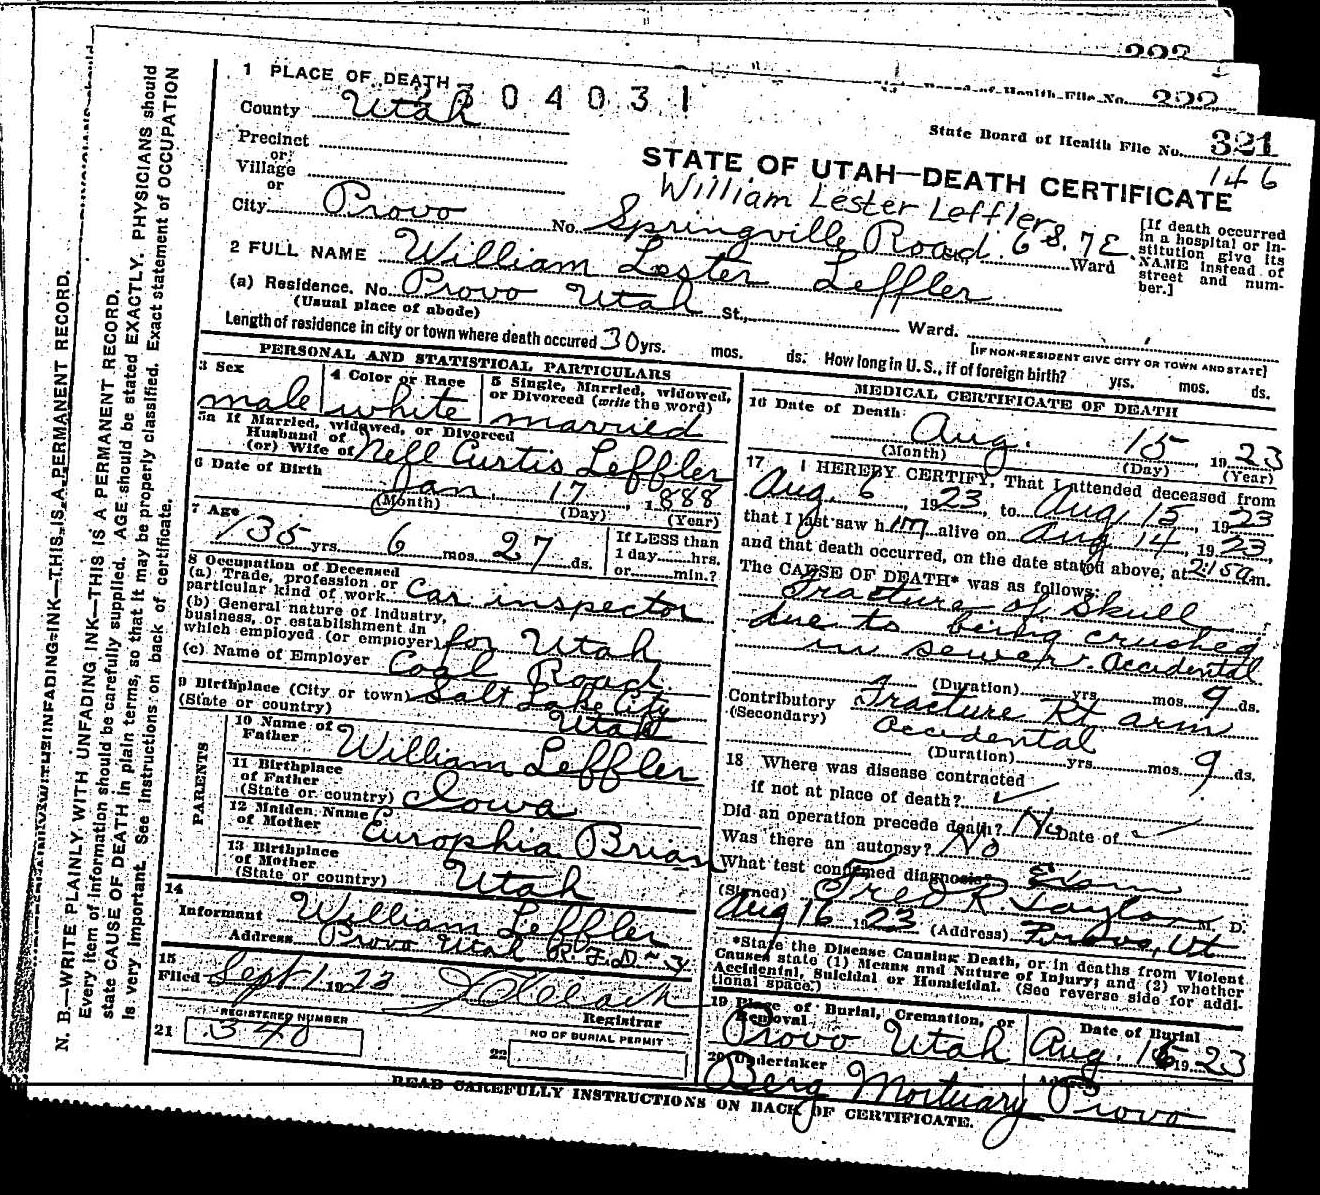 N. B.—WRITE PLAINLY WITH UNFADING INK—THIS IS A PERMANENT RECORD.
Every item of information should be carefully supplied. AGE should be stated EXACTLY. PHYSICIANS should
state CAUSE OF DEATH in plain terms, so that it may be properly classified. Exact statement of OCCUPATION
is very important. See instructions on back of certificate.
222
1 PLACE OF DEATH
04031
County Utah
Precinct
or
Village
or
City Provo
State Board of Health File No. 321
146
STATE OF UTAH—DEATH CERTIFICATE
William Lester Leffler
No. Springville Road. 6 S. 7 E. Ward
[If death occurred
in a hospital or in-
stitution give its
NAME instead of
street and num-
ber.]
2 FULL NAME William Lester Leffler
(a) Residence. No. Provo Utah St., Ward.
(Usual place of abode)
[IF NON-RESIDENT GIVE CITY OR TOWN AND STATE]
Length of residence in city or town where death occured 30 yrs. mos. ds. How long in U. S., if of foreign birth? yrs. mos. ds.
PERSONAL AND STATISTICAL PARTICULARS
3 Sex
male
4 Color or Race
white
5 Single, Married, widowed,
or Divorced (write the word)
married
5a If Married, widowed, or Divorced
Husband of
(or) Wife of Nell Curtis Leffler
6 Date of Birth
Jan. 17 1888
(Month) (Day) (Year)
7 Age
35 yrs. 6 mos. 27 ds.
If LESS than
1 day hrs.
or min.?
8 Occupation of Deceased
(a) Trade, profession or
particular kind of work Car inspector
(b) General nature of industry,
business, or establishment in
which employed (or employer) for Utah
(c) Name of Employer Coal Road
9 Birthplace (City or town) Salt Lake City
(State or country) Utah
PARENTS
10 Name of
Father William Leffler
11 Birthplace
of Father
(State or country) Iowa
12 Maiden Name
of Mother Europhia Brian
13 Birthplace
of Mother
(State or country) Utah
14
Informant William Leffler
Address Provo Utah R.F.D-3
15
Filed Sept 1 1923
Registrar
REGISTERED NUMBER
21 340
NO OF BURIAL PERMIT
22
MEDICAL CERTIFICATE OF DEATH
16 Date of Death
Aug. 15 1923
(Month) (Day) (Year)
17 I HEREBY CERTIFY, That I attended deceased from
Aug. 6 1923, to Aug 15, 1923
that I last saw him alive on Aug 14, 1923,
and that death occurred, on the date stated above, at 2:15 a m.
The CAUSE OF DEATH* was as follows:
Fracture of Skull
due to being crushed
in sewer. Accidental
(Duration) yrs. mos. 9 ds.
Contributory Fracture Rt arm
(Secondary) Accidental
(Duration) yrs. mos. 9 ds.
18 Where was disease contracted
if not at place of death?
Did an operation precede death? No Date of
Was there an autopsy? No
What test confirmed diagnosis? Exam
(Signed) Fred R. Taylor M. D.
Aug 16 1923 (Address) Provo, Ut
*State the Disease Causing Death, or in deaths from Violent
Causes state (1) Means and Nature of Injury; and (2) whether
Accidental, Suicidal or Homicidal. (See reverse side for addi-
tional space.)
19 Place of Burial, Cremation, or
Removal
Provo Utah
Date of Burial
Aug. 16 1923
20 Undertaker
Berg Mortuary
Address
Provo
READ CAREFULLY INSTRUCTIONS ON BACK OF CERTIFICATE.